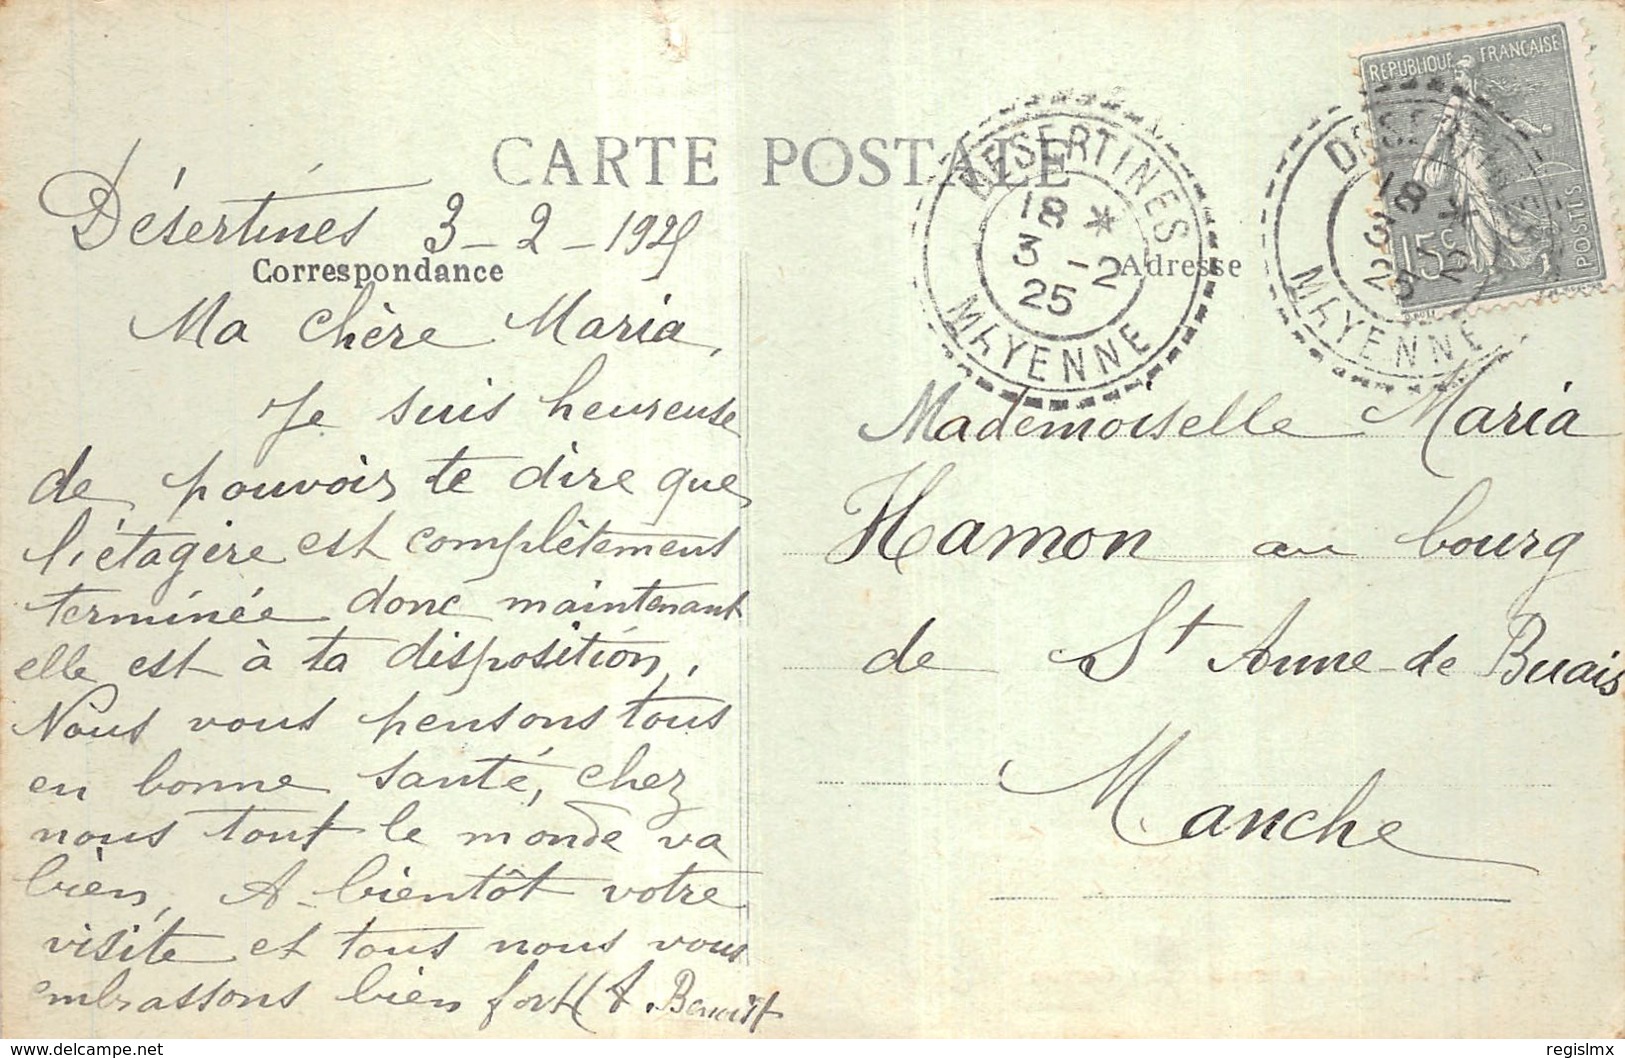 CARTE POSTALE
Désertines 3-2-1925
Correspondance
Ma chère Maria,
Je suis heureuse
de pouvoir te dire que
l'étagère est complètement
terminée donc maintenant
elle est à ta disposition,
Nous vous pensons tous
en bonne santé, chez
nous tout le monde va
bien, A-bientôt votre
visite et tous nous vous
embrassons bien fort A. Benoist
DESERTINES
18 *
3 -2
25
MAYENNE
Adresse
REPUBLIQUE FRANÇAISE
15c
POSTES
DESERTINES
18 *
3 -2
25
MAYENNE
Mademoiselle Maria
Hamon au bourg
de St Anne-de Buais
Manche
delcampe.net
regislmx